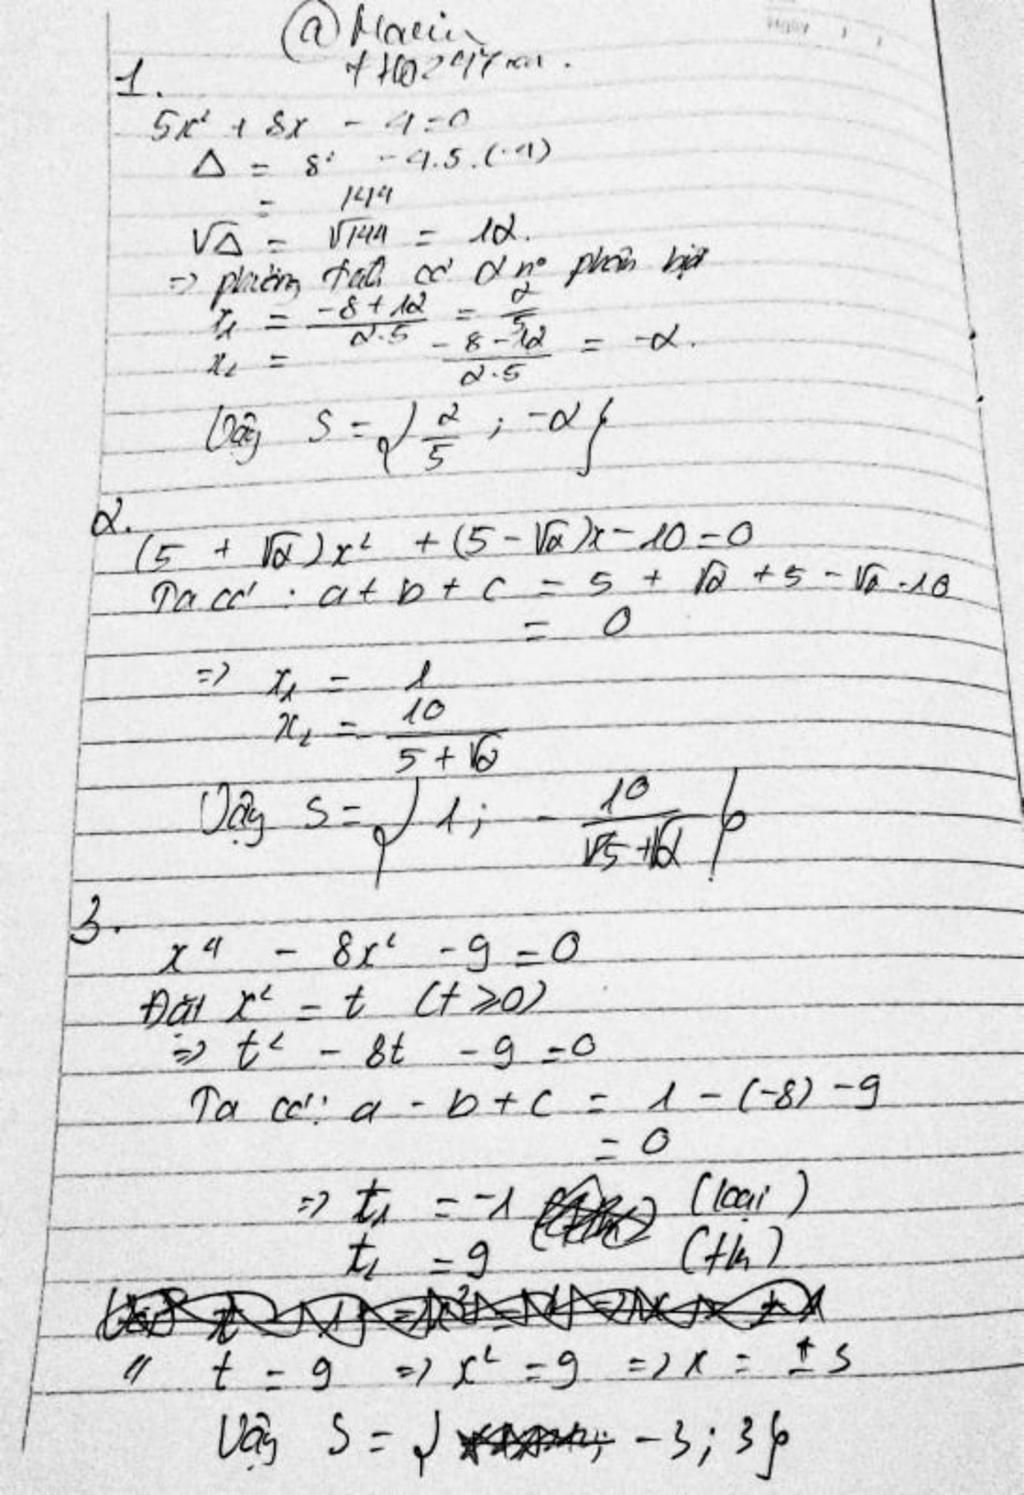 @ Macin
1.
5x² + 8x - 4 = 0
Δ = 8² - 4.5.(-4)
= 144
√Δ = √144 = 12.
=> phương trình có 2 n° phân biệt
x₁ = (-8 + 12)/(2.5) = 2/5
x₂ = (-8 - 12)/(2.5) = -2.
Vậy S = { 2/5 ; -2 }
2.
(5 + √2)x² + (5 - √2)x - 10 = 0
Ta có: a + b + c = 5 + √2 + 5 - √2 - 10
= 0
=> x₁ = 1
x₂ = - 10/(5 + √2)
Vậy S = { 1; - 10/(√5 + √2) }
3.
x⁴ - 8x² - 9 = 0
Đặt x² = t (t ≥ 0)
=> t² - 8t - 9 = 0
Ta có: a - b + c = 1 - (-8) - 9
= 0
=> t₁ = -1 (loại)
t₂ = 9 (t/m)
" t = 9 => x² = 9 => x = ± 3
Vậy S = { -3; 3 }